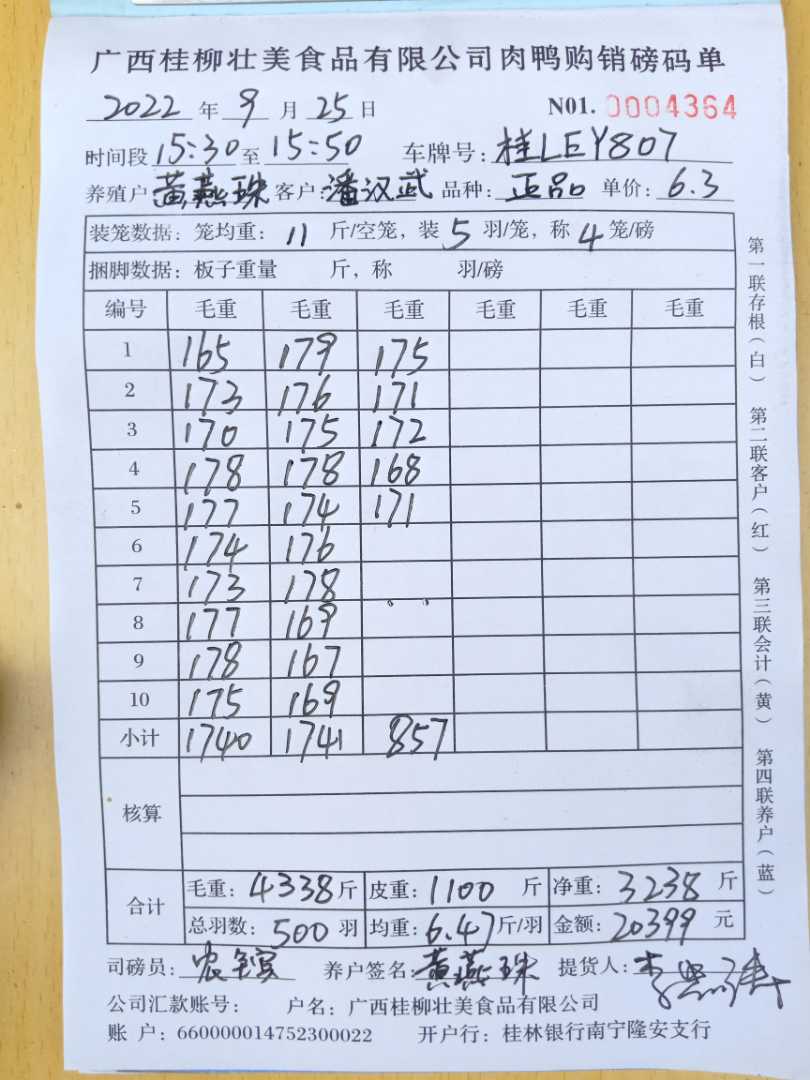 广西桂柳壮美食品有限公司肉鸭购销磅码单
2022 年 9 月 25 日 N01. 0004364
时间段 15:30 至 15:50 车牌号: 桂LEY807
养殖户 黄燕珠 客户: 潘汉武 品种: 正品 单价: 6.3
装笼数据: 笼均重: 11 斤/空笼, 装 5 羽/笼, 称 4 笼/磅
捆脚数据: 板子重量 斤, 称 羽/磅
编号 毛重 毛重 毛重 毛重 毛重 毛重
1 165 179 175
2 173 176 171
3 170 175 172
4 178 178 168
5 177 174 171
6 174 176
7 173 178
8 177 169
9 178 167
10 175 169
小计 1740 1741 857
核算
合计 毛重: 4338 斤 皮重: 1100 斤 净重: 3238 斤
总羽数: 500 羽 均重: 6.47 斤/羽 金额: 20399 元
司磅员: 养户签名: 黄燕珠 提货人:
公司汇款账号: 户名: 广西桂柳壮美食品有限公司
账 户: 660000014752300022 开户行: 桂林银行南宁隆安支行
第一联存根(白) 第二联客户(红) 第三联会计(黄) 第四联养户(蓝)